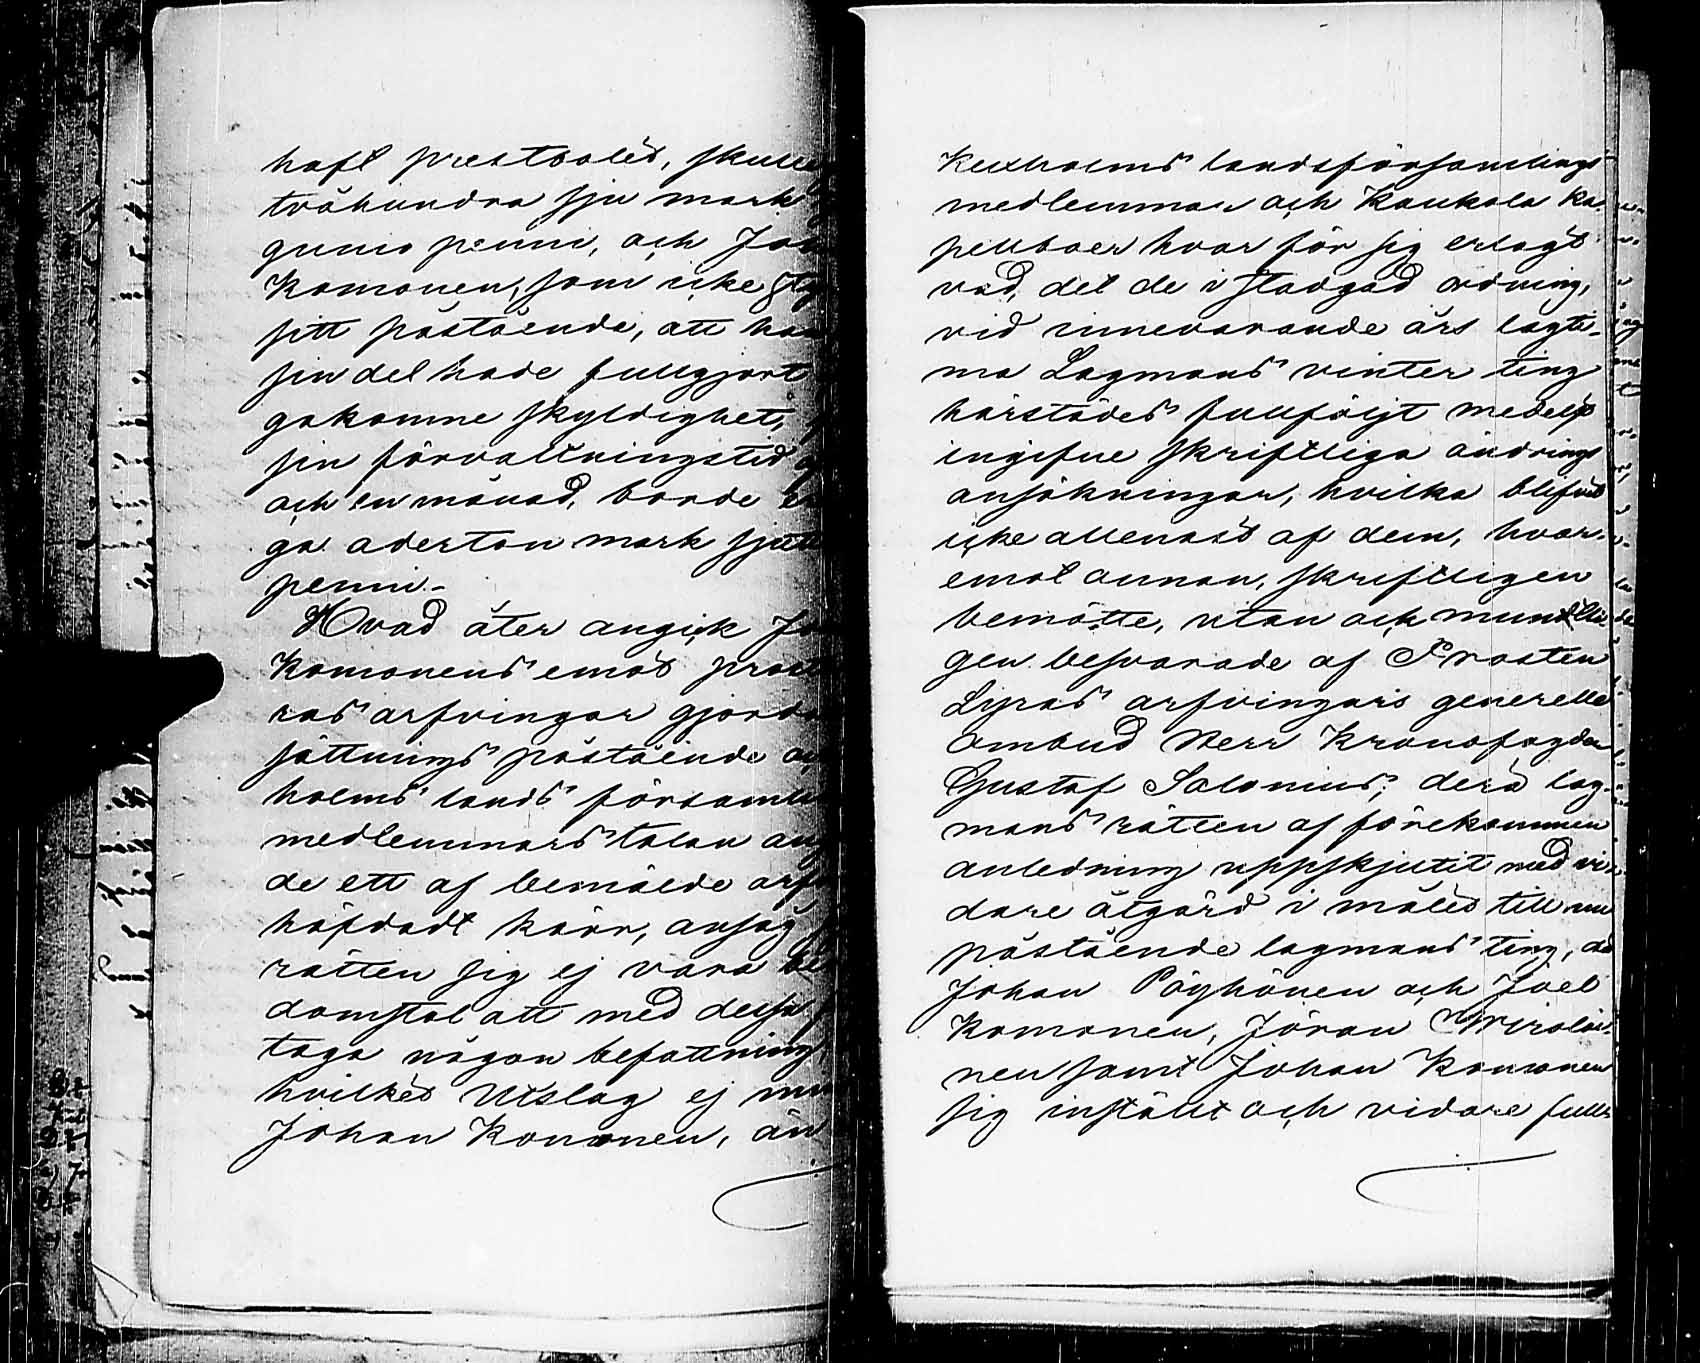 haft prestbolet, skulle
tvåhundra sju mark
gunio penni, och Jo
Komonen, som icke sty
sitt påstående, att ha
sin del hade fullgjort
gakomne skyldighet,
sin förvaltningstid
och en månad, borde
ga aderton mark sjut
penni.
Hvad åter angick Jo
Komonens emot prost
ras arfvingar gjorde
sättnings påstående oc
holms lands församl
medlemmars talan an
de ett af bemälde arf
häfdadt kärr, ansåg
rätten sig ej vara be
domstol att med dessa
taga någon befattning,
hvilket Utslag ej min
Johan Kononen, än
Kexholms landsförsamlings
medlemmar och Kaukola ka-
pellboer hvar för sig erlagt
vad, det de i stadgad ordning,
vid innevarande års lagti-
ma Lagmans vinter ting
härstädes fullföljt medelst
ingifne skriftliga ändrings
ansökningar, hvilka blifvit
icke allenast af dem, hvar-
emot annan, skriftligen
bemötte, utan och mundtli-
gen besvarade af Prosten
Lyras arfvingars generella
ombud Herr Kronofogden
Gustaf Salonius; dera lag-
mans rätten af förekommen
anledning uppskjutit med vi-
dare åtgärd i målet till nu
påstående lagmans ting, då
Johan Pöyhönen och Joel
Komonen, Jöran Wirolai-
nen samt Johan Kononen
sig inställt och vidare full-